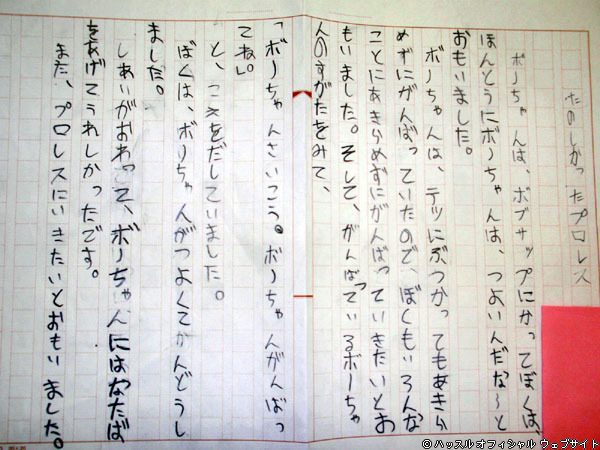 たのしかったプロレス
ボノちゃんは、ボブサップにかってぼくは、
ほんとうにボノちゃんは、つよいんだな～と
おもいました。
ボノちゃんは、テツにぶつかってもあきら
めずにがんばっていたので、ぼくもいろんな
ことにあきらめずにがんばっていきたいとお
もいました。そして、がんばっているボノちゃ
んのすがたをみて、
「ボノちゃんさいこう。ボノちゃんがんばっ
てね」。
と、こえをだしていました。
ぼくは、ボノちゃんがつよくてかんどうし
ました。
しあいがおわって、ボノちゃんにはなたば
をあげてうれしかったです。
また、プロレスにいきたいとおもいました。
© ハッスル オフィシャル ウェブサイト